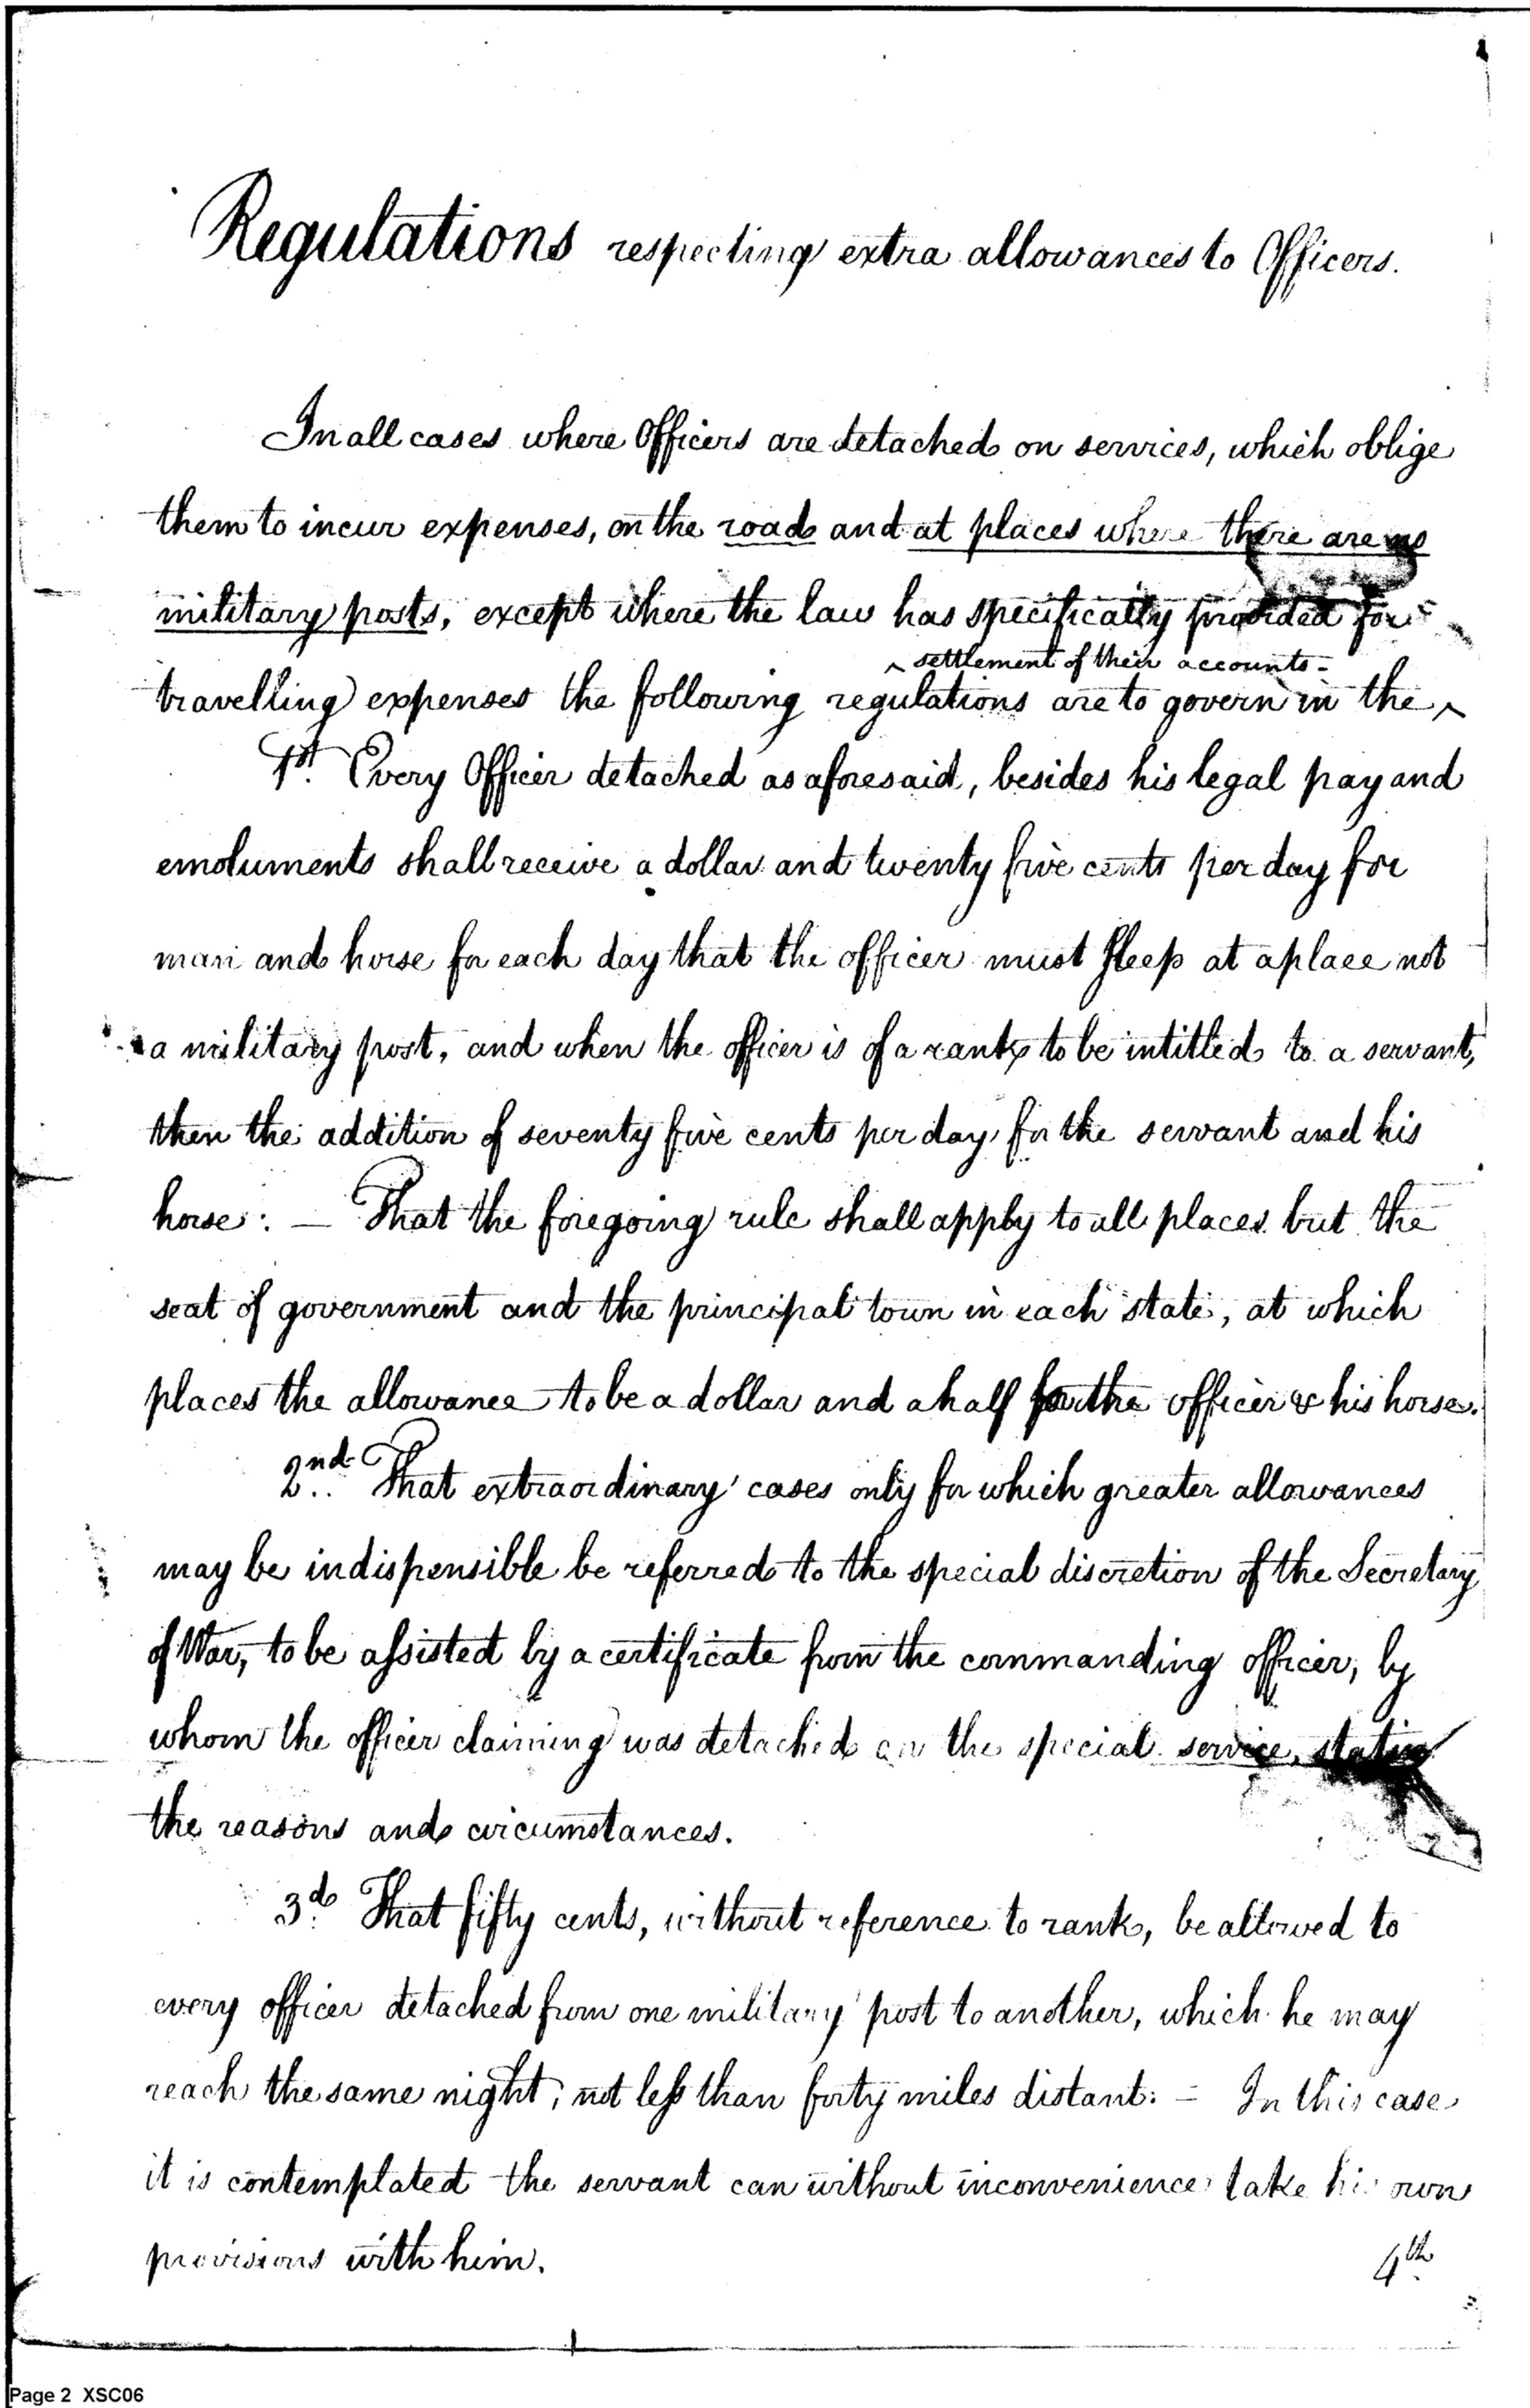 Regulations respecting extra allowances to Officers.
In all cases where Officers are detached on services, which oblige
them to incur expenses, on the road and at places where there are no
military posts, except where the law has specifically provided for
^ settlement of their accounts -
travelling expenses the following regulations are to govern in the ^
1st. Every Officer detached as aforesaid, besides his legal pay and
emoluments shall receive a dollar and twenty five cents per day for
man and horse for each day that the officer must sleep at a place not
a military post, and when the officer is of a rank to be intitled to a servant,
then the addition of seventy five cents per day, for the servant and his
horse: — That the foregoing rule shall apply to all places but the
seat of government and the principal town in each state, at which
places the allowance to be a dollar and a half for the officer & his horse.
2nd.. That extraordinary cases only for which greater allowances
may be indispensible be referred to the special discretion of the Secretary
of War, to be assisted by a certificate from the commanding officer, by
whom the officer claiming was detached on the special service, stating
the reasons and circumstances.
3d. That fifty cents, without reference to rank, be allowed to
every officer detached from one military post to another, which he may
reach the same night, not less than forty miles distant: = In this case
it is contemplated the servant can without inconvenience take his own
provisions with him.
4th.
Page 2 XSC06